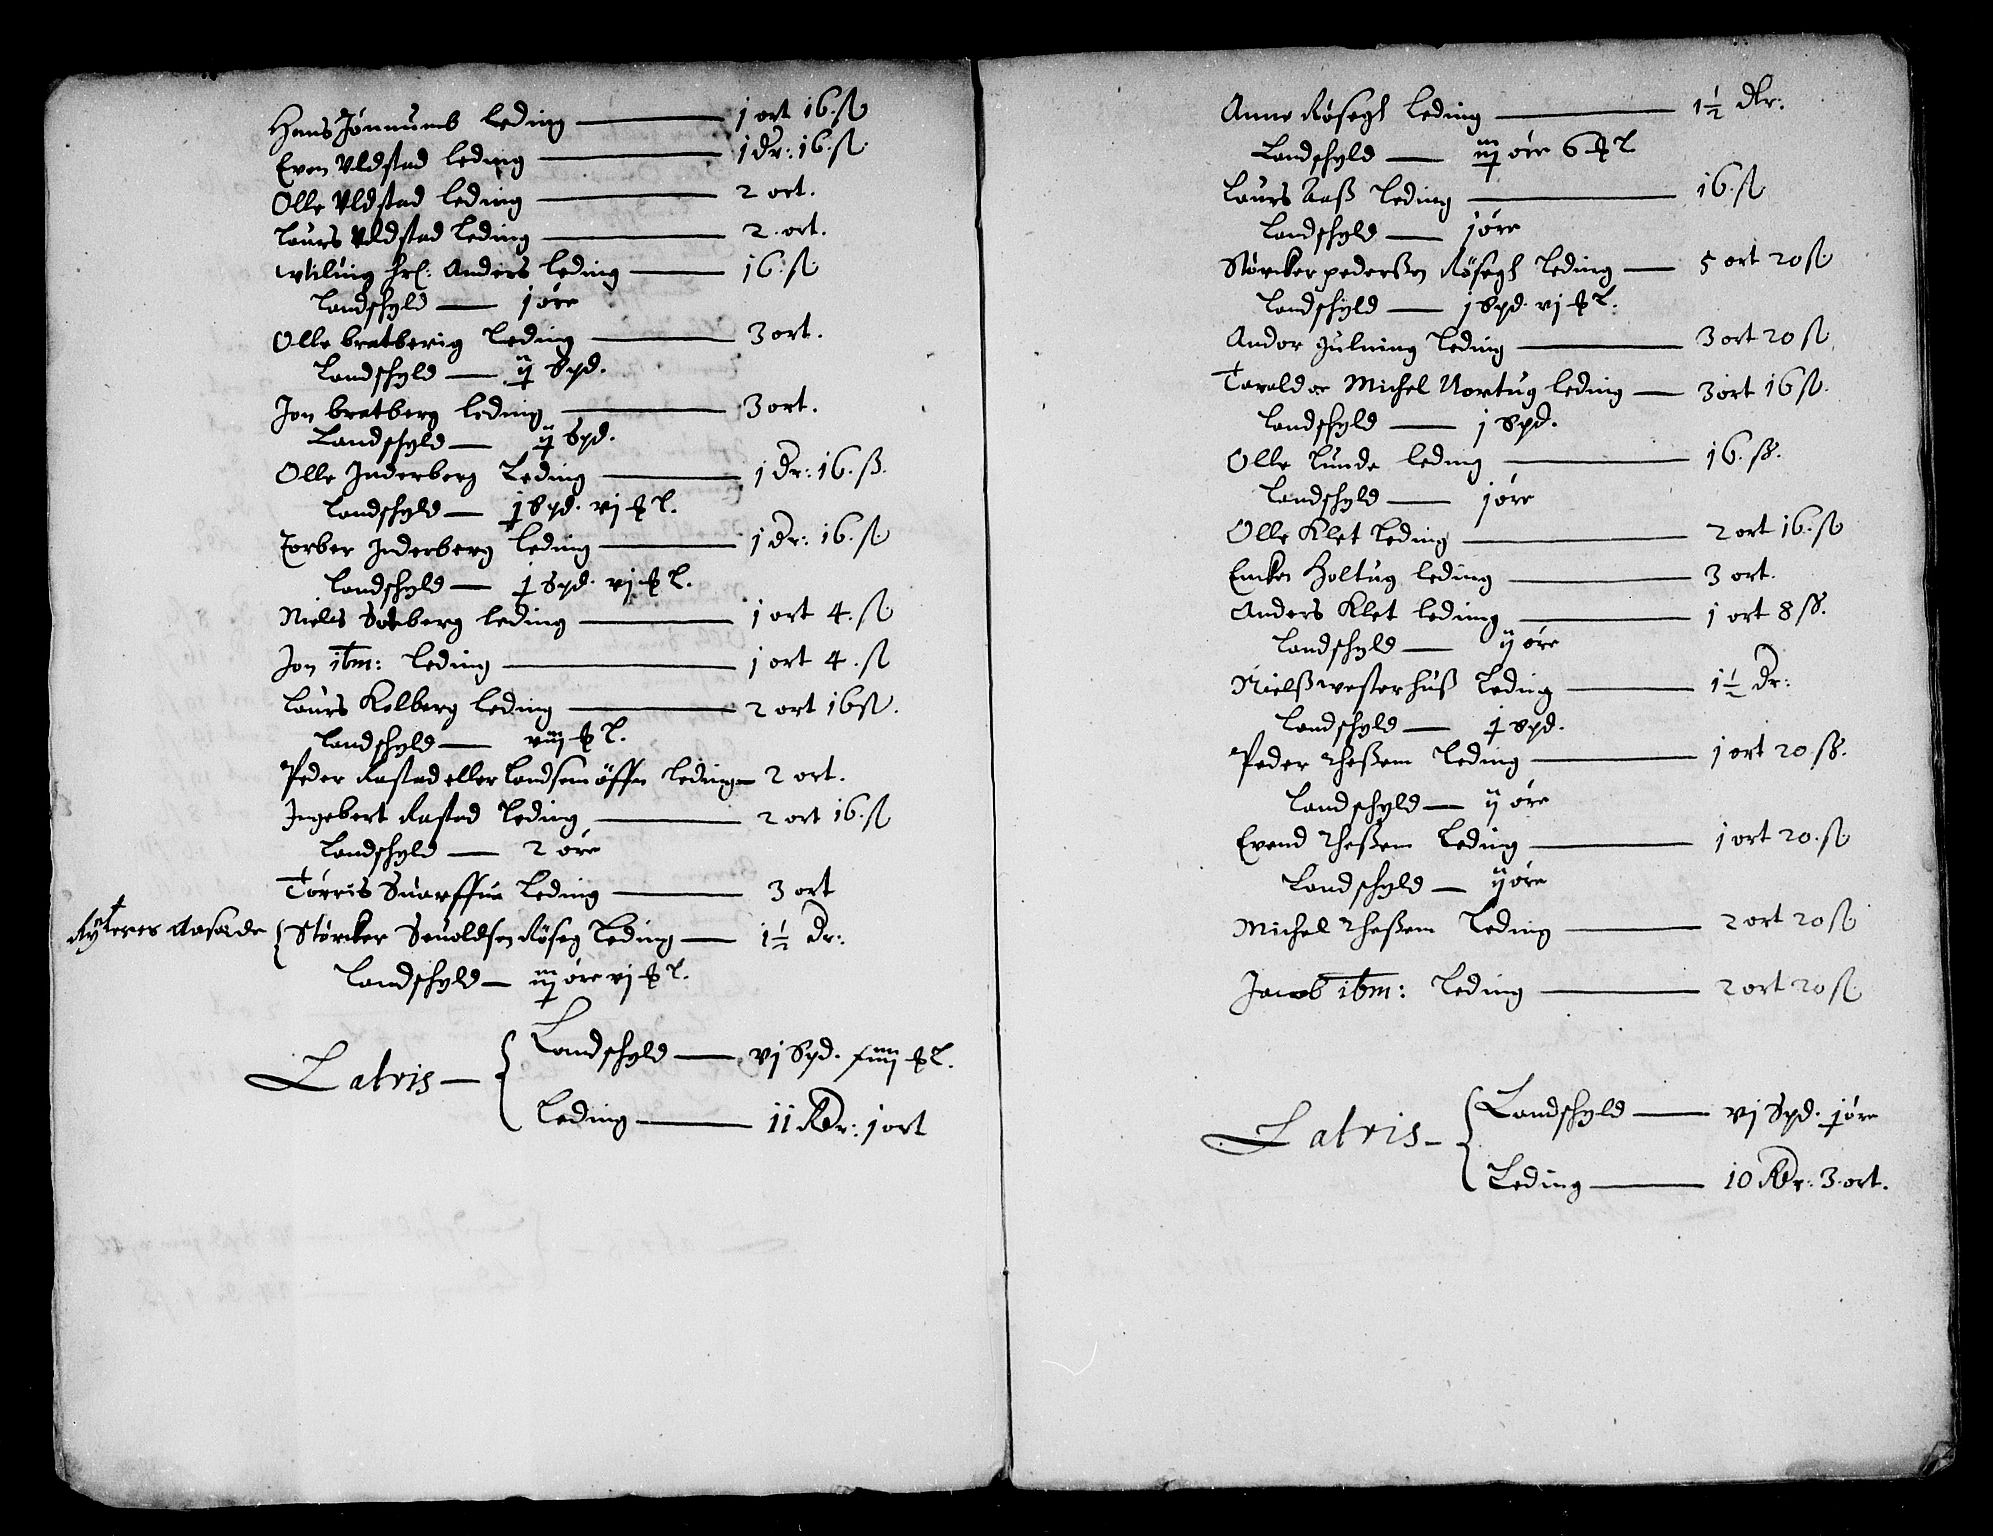 Hans Jönnumb leding — 1 ort 16 ß
Even Uldstad leding — 1 dr: 16 ß.
Olle Uldstad leding — 2 ort.
Laurs Uldstad leding — 2 ort.
hrl: Anders leding — 16 ß
Landschyld — j öre
Olle bratberig leding — 3 ort.
Landschyld — ij Spd.
Jon bratberg leding — 3 ort.
Landschyld — ij Spd.
Olle Inderberg leding — 1 dr: 16. ß.
Landschyld — j Spd. vj ₰ l.
Torber Inderberg leding — 1 dr: 16. ß
Landschyld — j Spd. vj ₰ l.
Niels Salberg leding — 1 ort 4. ß
Jon ibm: leding — 1 ort 4. ß
Laurs Kolberg leding — 2 ort 16 ß.
Landschyld — viij ₰ l.
Peder Rastad eller leding — 2 ort.
Ingebert Rastad leding — 2 ort 16. ß
Landschyld — 2 öre
Törris Suarffue leding — 3 ort
Rytteres Aasæde { Störcker Seuoldsen Röseg leding — 1½ dr:
Landschyld — iij öre vj ₰ l.
Latris — { Landschyld — vj Spd. ₰ l.
Leding — 11 Rdr: 1 ort
Anne Rösegh leding — 1½ dlr:
Landschyld — iij öre 6 ₰ l
Laurs Aaß leding — 16. ß
Landschyld — j öre
Störcker pederßen Rösegh leding — 5 ort 20 ß.
Landschyld — j Spd. vj ₰ l.
Andor Julning leding — 3 ort 20 ß.
Tarald oc Michel Nortug leding — 3 ort 16 ß.
Landschyld — j Spd.
Olle Lunde leding — 16. ß.
Landschyld — j öre
Olle Klet leding — 2 ort 16. ß
Holtug leding — 3 ort.
Anders Klet leding — 1 ort 8 ß.
Landschyld — ij öre
Nielß westerhuß leding — 1½ dr:
Landschyld — j Spd.
Peder Rheßem leding — 1 ort 20 ß.
Landschyld — ij öre
Evend Rheßem leding — 1 ort 20. ß
Landschyld — ij öre
Michel Rheßem leding — 2 ort 20 ß
Jacob ibm: leding — 2 ort 20 ß.
Latris — { Landschyld — vj Spd. j öre
Leding — 10 Rdr: 3 ort.